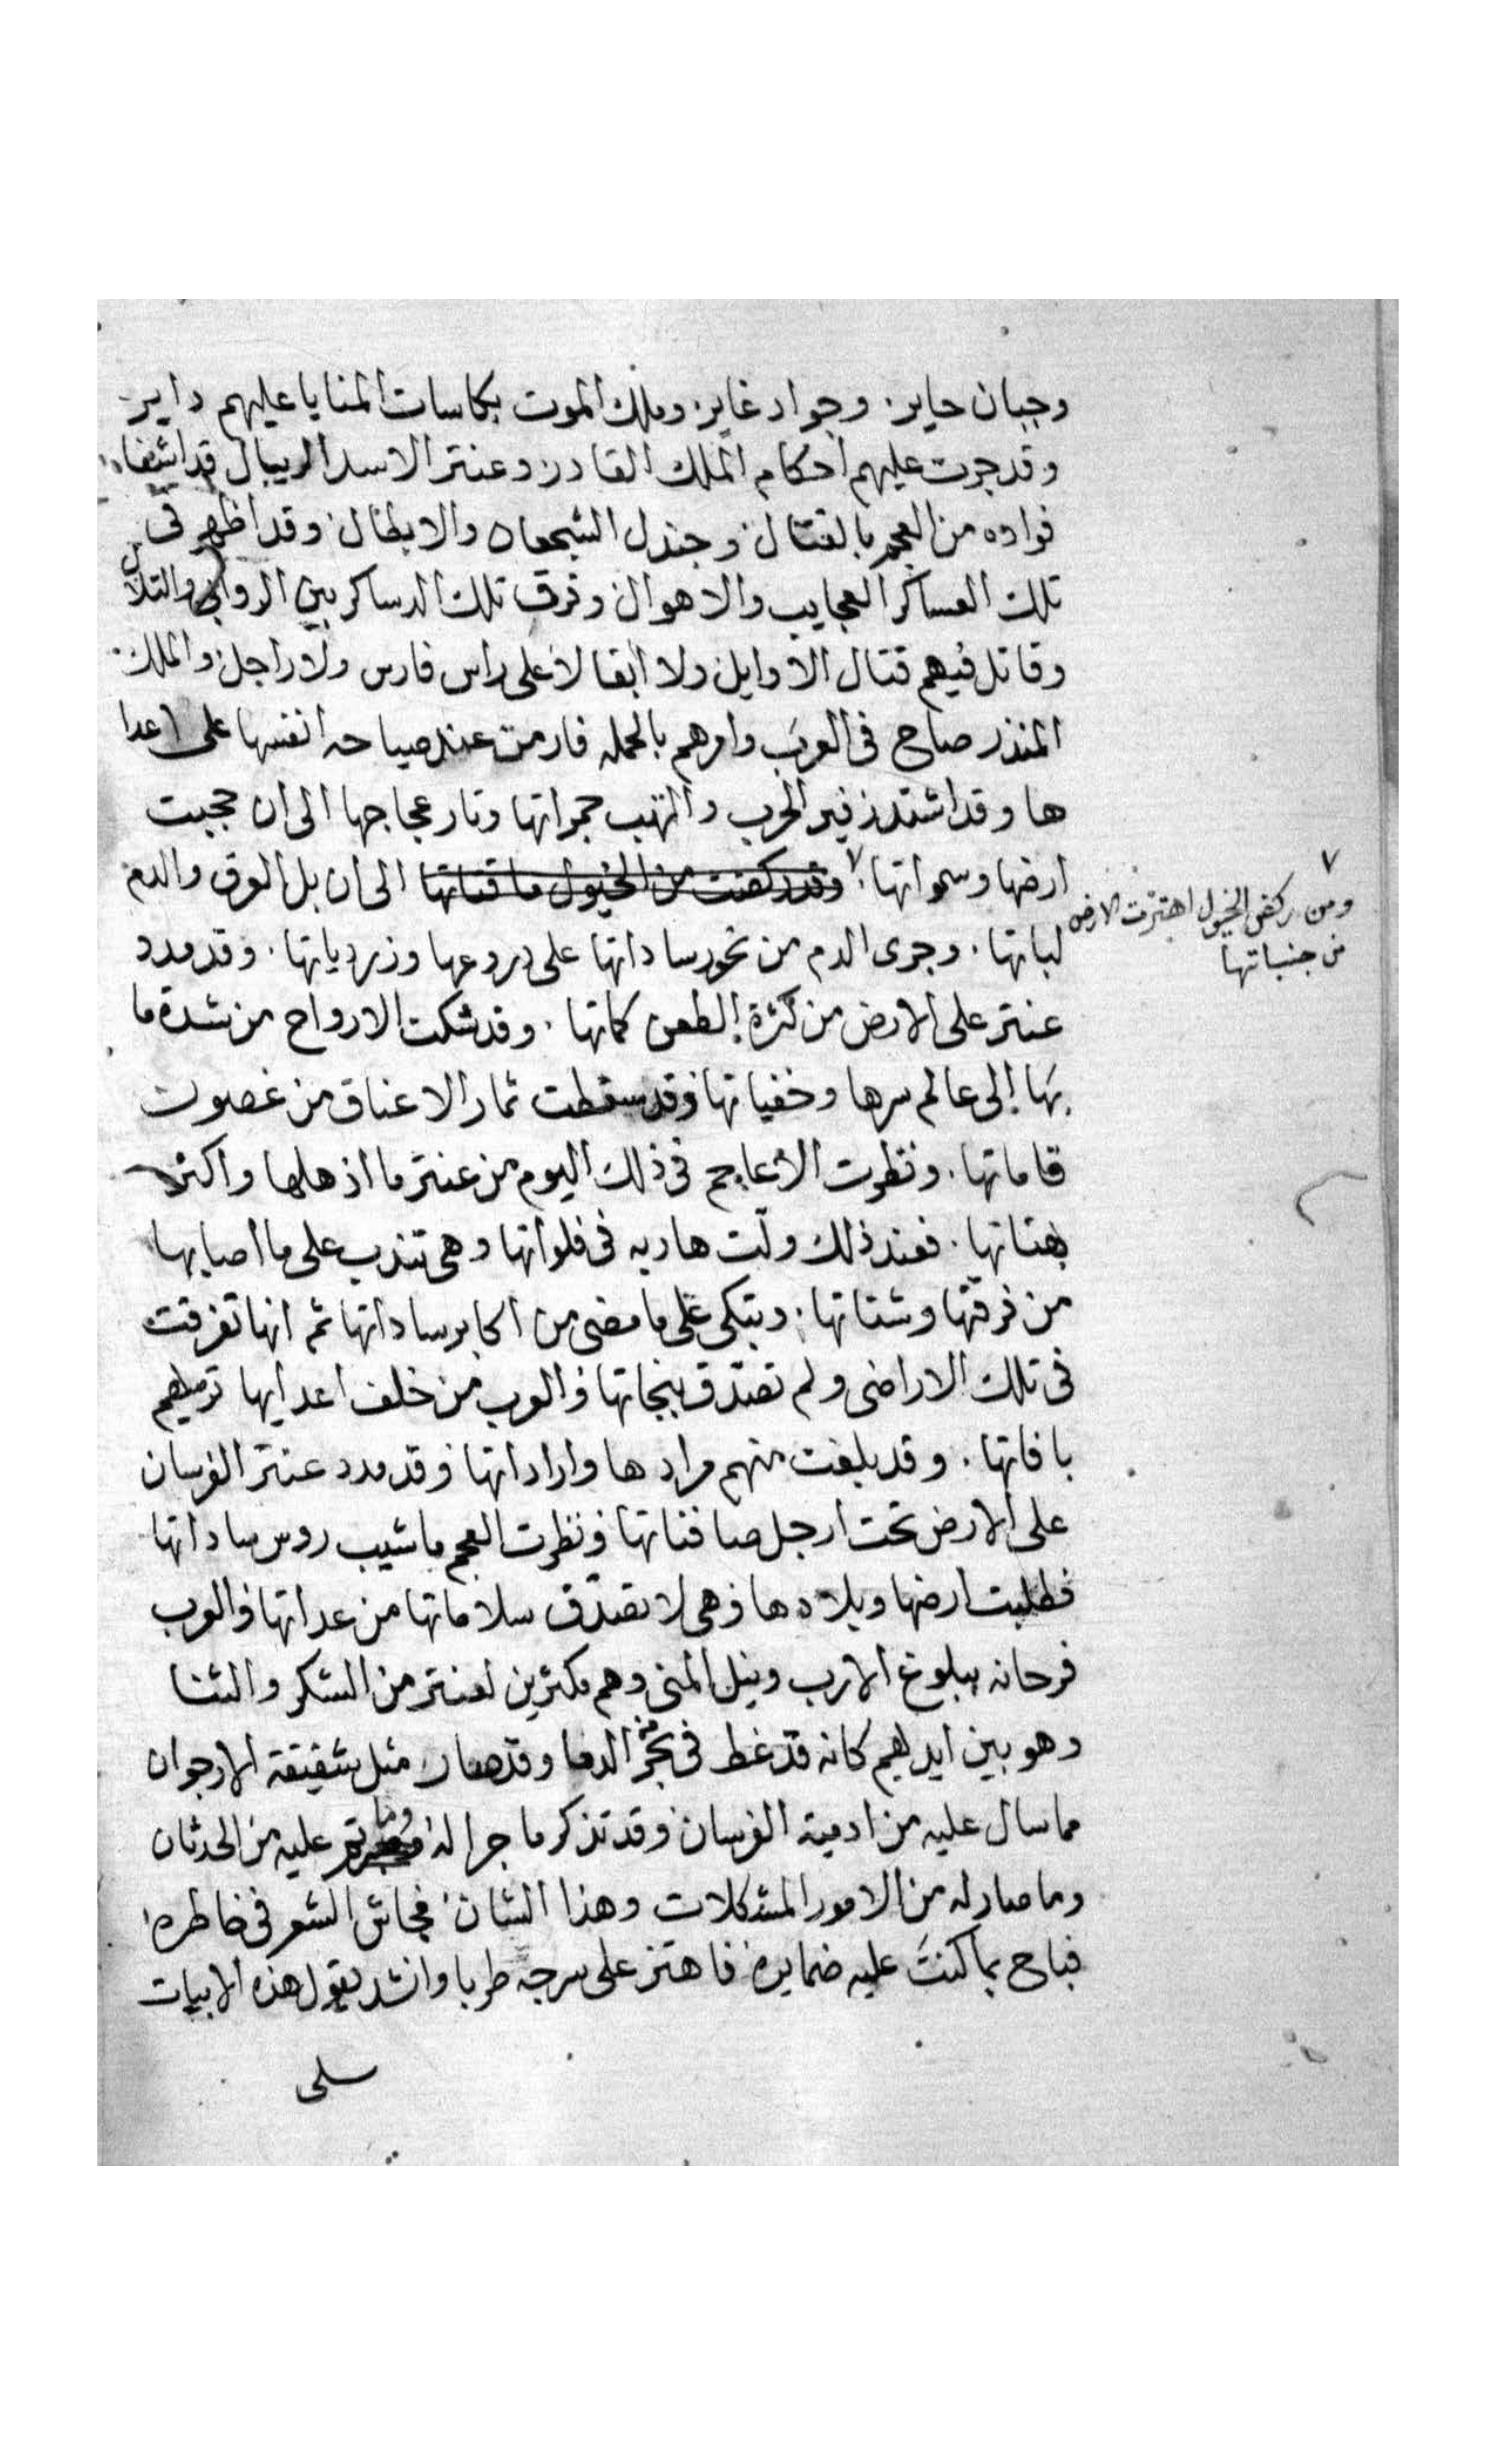 وجبان حاير. وجواد غاير. وملك الموت بكاسات المنايا عليهم داير
وقد جرت عليهم احكام الملك القادر وعنتر الاسد الريبال قد اشفا
فواده من العجم بالقتال وجندل الشجعان والابطال وقد اظهر فى
تلك العساكر العجايب والاهوال وفرق تلك الدساكر بين الروابى والتلال
وقاتل فيهم قتال الاوايل ولا ابقا لا على راس فارس ولا راجل والملك
المنذر صاح فى العرب وامرهم بالحمله فارمت عند صياحه انفسها على اعدا
ها وقد اشتد زفير الحرب والتهب جمراتها وثار عجاجها الى ان حجبت
ارضها وسمواتها. ٧ وقد ركضت من الخيول ما قناتها الى ان بل العرق والدم
٧
ومن ركض الخيول اهتزت الارض
من جنباتها
لباتها. وجرى الدم من نحور ساداتها على دروعها وزردياتها. وقد مدد
عنتر على الارض من كثرة الطعن كماتها. وقد شكت الارواح من شدة ما
بها إلى عالم سرها وخفياتها وقد سقطت ثمار الاعناق من غصون
قاماتها. ونظرت الأعاجم فى ذلك اليوم من عنتر ما اذهلها واكثر
هتاتها. فعند ذلك ولّت هاربه فى فلواتها وهى تندب على ما اصابها
من فرقتها وشتاتها. وتبكى على ما مضى من اكابر ساداتها ثم انها تفرقت
فى تلك الاراضى ولم تصدّق بنجاتها والعرب من خلف اعدايها ترميهم
بافاتها. وقد بلغت منهم مرادها واراداتها وقد مدد عنتر الفرسان
على الارض تحت ارجل صافناتها ونظرت العجم ما شيب روس ساداتها
فطلبت ارضها وبلادها وهى لا تصدّق سلاماتها من عداتها والعرب
فرحانه ببلوغ الارب ونيل المنى وهم مكثرين لعنتر من الشكر والثنا
وهو بين ايديهم كانه قد غط فى بحر من الدما وقد صار مثل شقيقة الارجوان
مما سال عليه من ادمية الفرسان وقد تذكر ما جرا له وما تم عليه من الحدثان
وما صار له من الامور المشكلات وهذا الشان فجاش الشعر فى خاطره
فباح بما كنت عليه ضمايره فاهتز على سرجه طربا وانشد يقول هذه الابيات
سلى